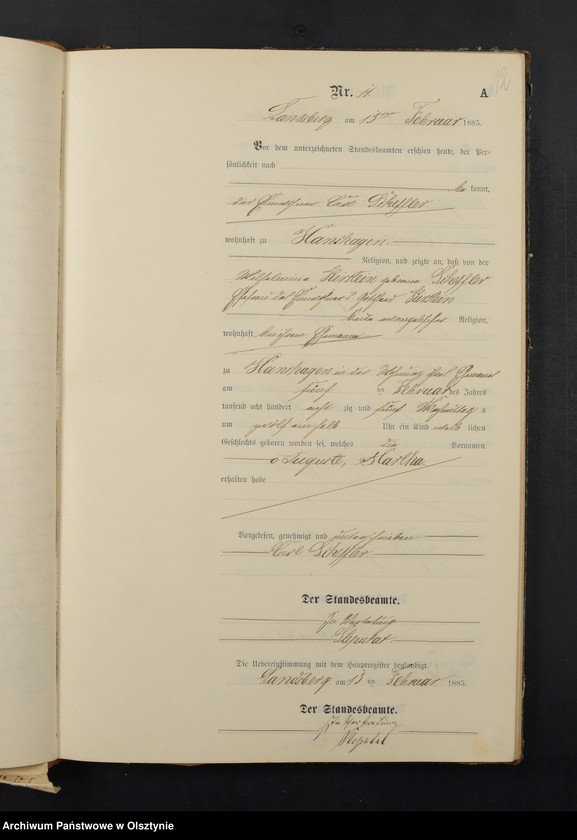 12
Nr. 11. A
Landsberg am 13ten Februar 1885.
Vor dem unterzeichneten Standesbeamten erschien heute, der Per-
sönlichkeit nach
be kannt,
der Carl Scheffler
wohnhaft zu Hanshagen.
Religion, und zeigte an, daß von der
Wilhelmine Kirstein geborene Scheffler
Ehefrau des Gottlieb Kirstein
beide evangelischer Religion,
wohnhaft bei ihrem Ehemann
zu Hanshagen in der Wohnung ihres Ehemanns
am fünf ten Februar des Jahres
tausend acht hundert acht zig und fünf Nachmittags
um zwölf einhalb Uhr ein Kind weib lichen
Geschlechts geboren worden sei, welches die Vornamen
Auguste, Martha
erhalten habe
Vorgelesen, genehmigt und unterschrieben
Karl Scheffler.
Der Standesbeamte.
In Vertretung
Die Uebereinstimmung mit dem Hauptregister beglaubigt.
Landsberg am 13 ten Februar 1885.
Der Standesbeamte.
In Vertretung
Archiwum Państwowe w Olsztynie